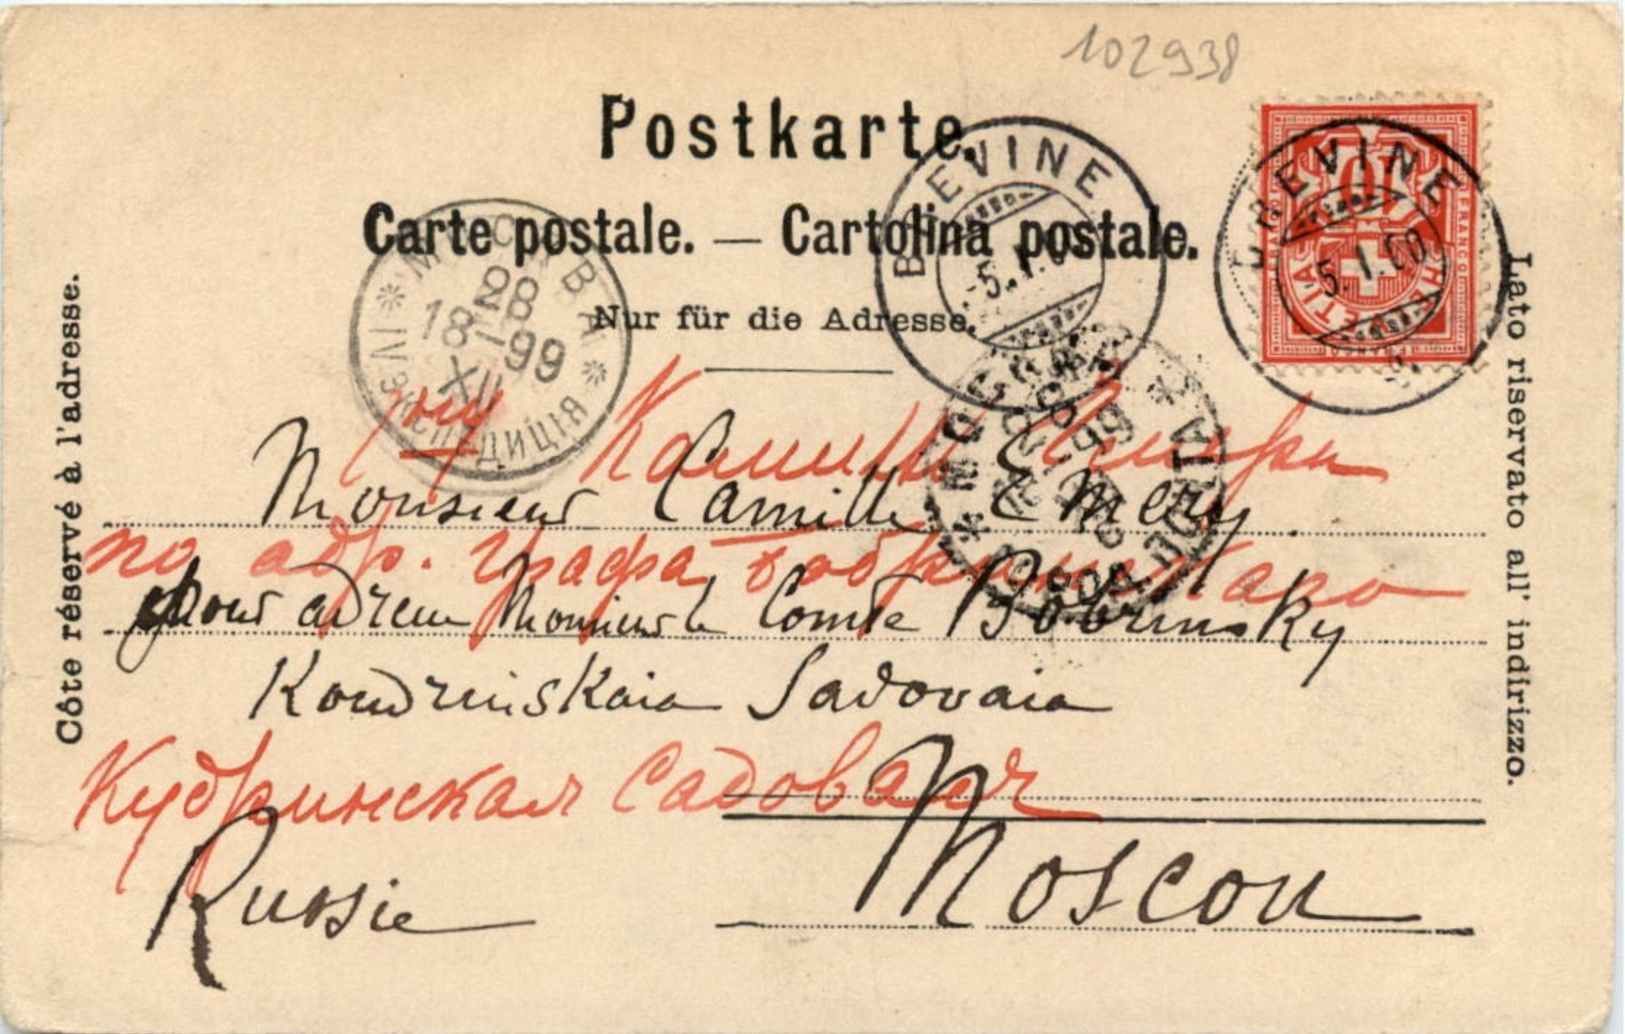 102938
Postkarte.
Carte postale. — Cartolina postale.
Nur für die Adresse.
Côte réservé à l'adresse.
Lato riservato all' indirizzo.
BREVINE
-5.I.00
BREVINE
5.I.00
FRANCO
HELVETIA
10
МОСКВА
28
XII
18-99
IV ЭКСПЕДИЦІЯ
МОСКВА
ПОЧТА
Камиллъ Эмери
Monsieur Camille Emery
по адр. графа Бобринскаго
pour adresse Monsieur le Comte Bobrinsky
Koudrinskaia Sadovaia
Кудринская Садовая
Moscou
Russie